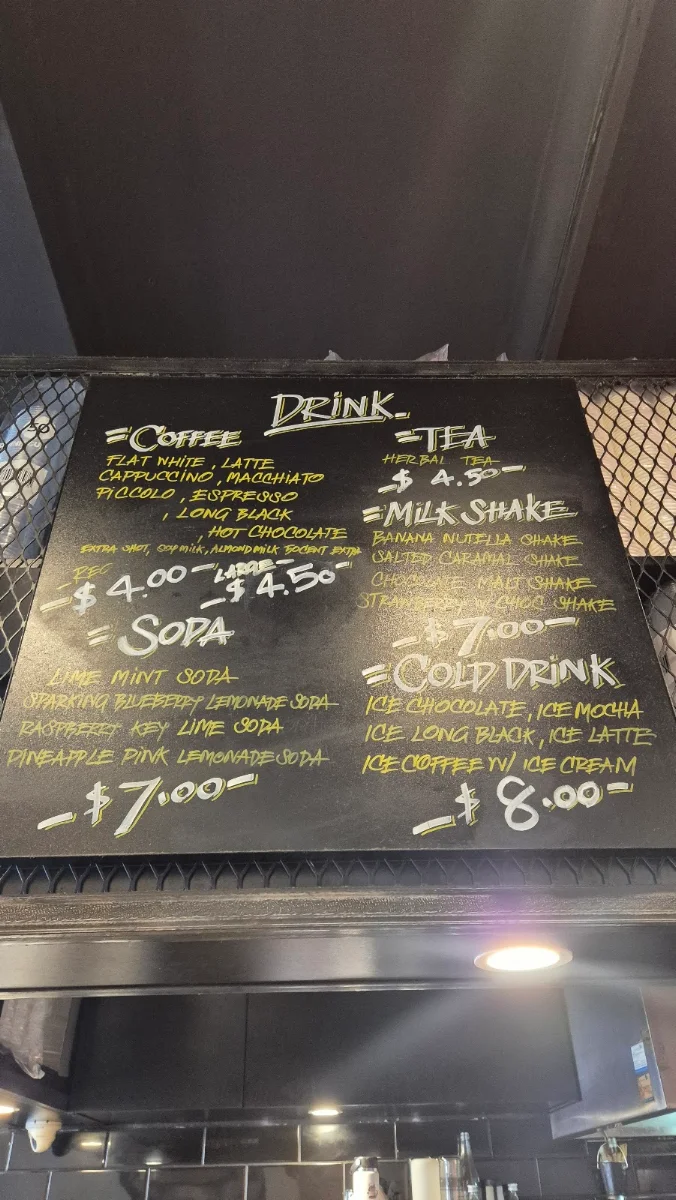 DRINK
COFFEE
FLAT WHITE, LATTE
CAPPUCCINO, MACCHIATO
PICCOLO, ESPRESSO
, LONG BLACK
, HOT CHOCOLATE
EXTRA SHOT, SOY MILK, ALMOND MILK 50CENT EXTRA
REG LARGE
$4.00 $4.50
SODA
LIME MINT SODA
SPARKING BLUEBERRY LEMONADE SODA
RASPBERRY KEY LIME SODA
PINEAPPLE PINK LEMONADE SODA
$7.00
TEA
HERBAL TEA
$4.50
MILK SHAKE
BANANA NUTELLA SHAKE
SALTED CARAMAL SHAKE
CHOCOLATE MALT SHAKE
STRAWBERRY CHOC SHAKE
$7.00
COLD DRINK
ICE CHOCOLATE, ICE MOCHA
ICE LONG BLACK, ICE LATTE
ICE COFFEE W/ ICE CREAM
$8.00